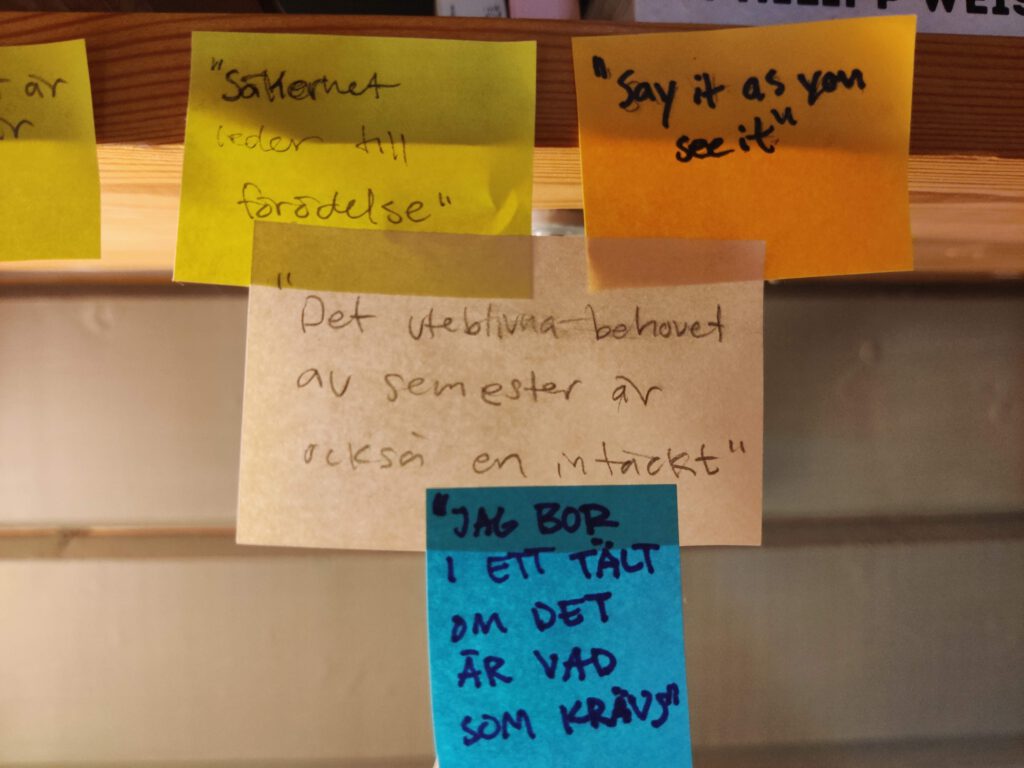 är
"Säkerhet
leder till
förödelse"
"Say it as you
see it"
"Det uteblivna behovet
av semester är
också en intäckt"
"JAG BOR
I ETT TÄLT
OM DET
ÄR VAD
SOM KRÄVS"